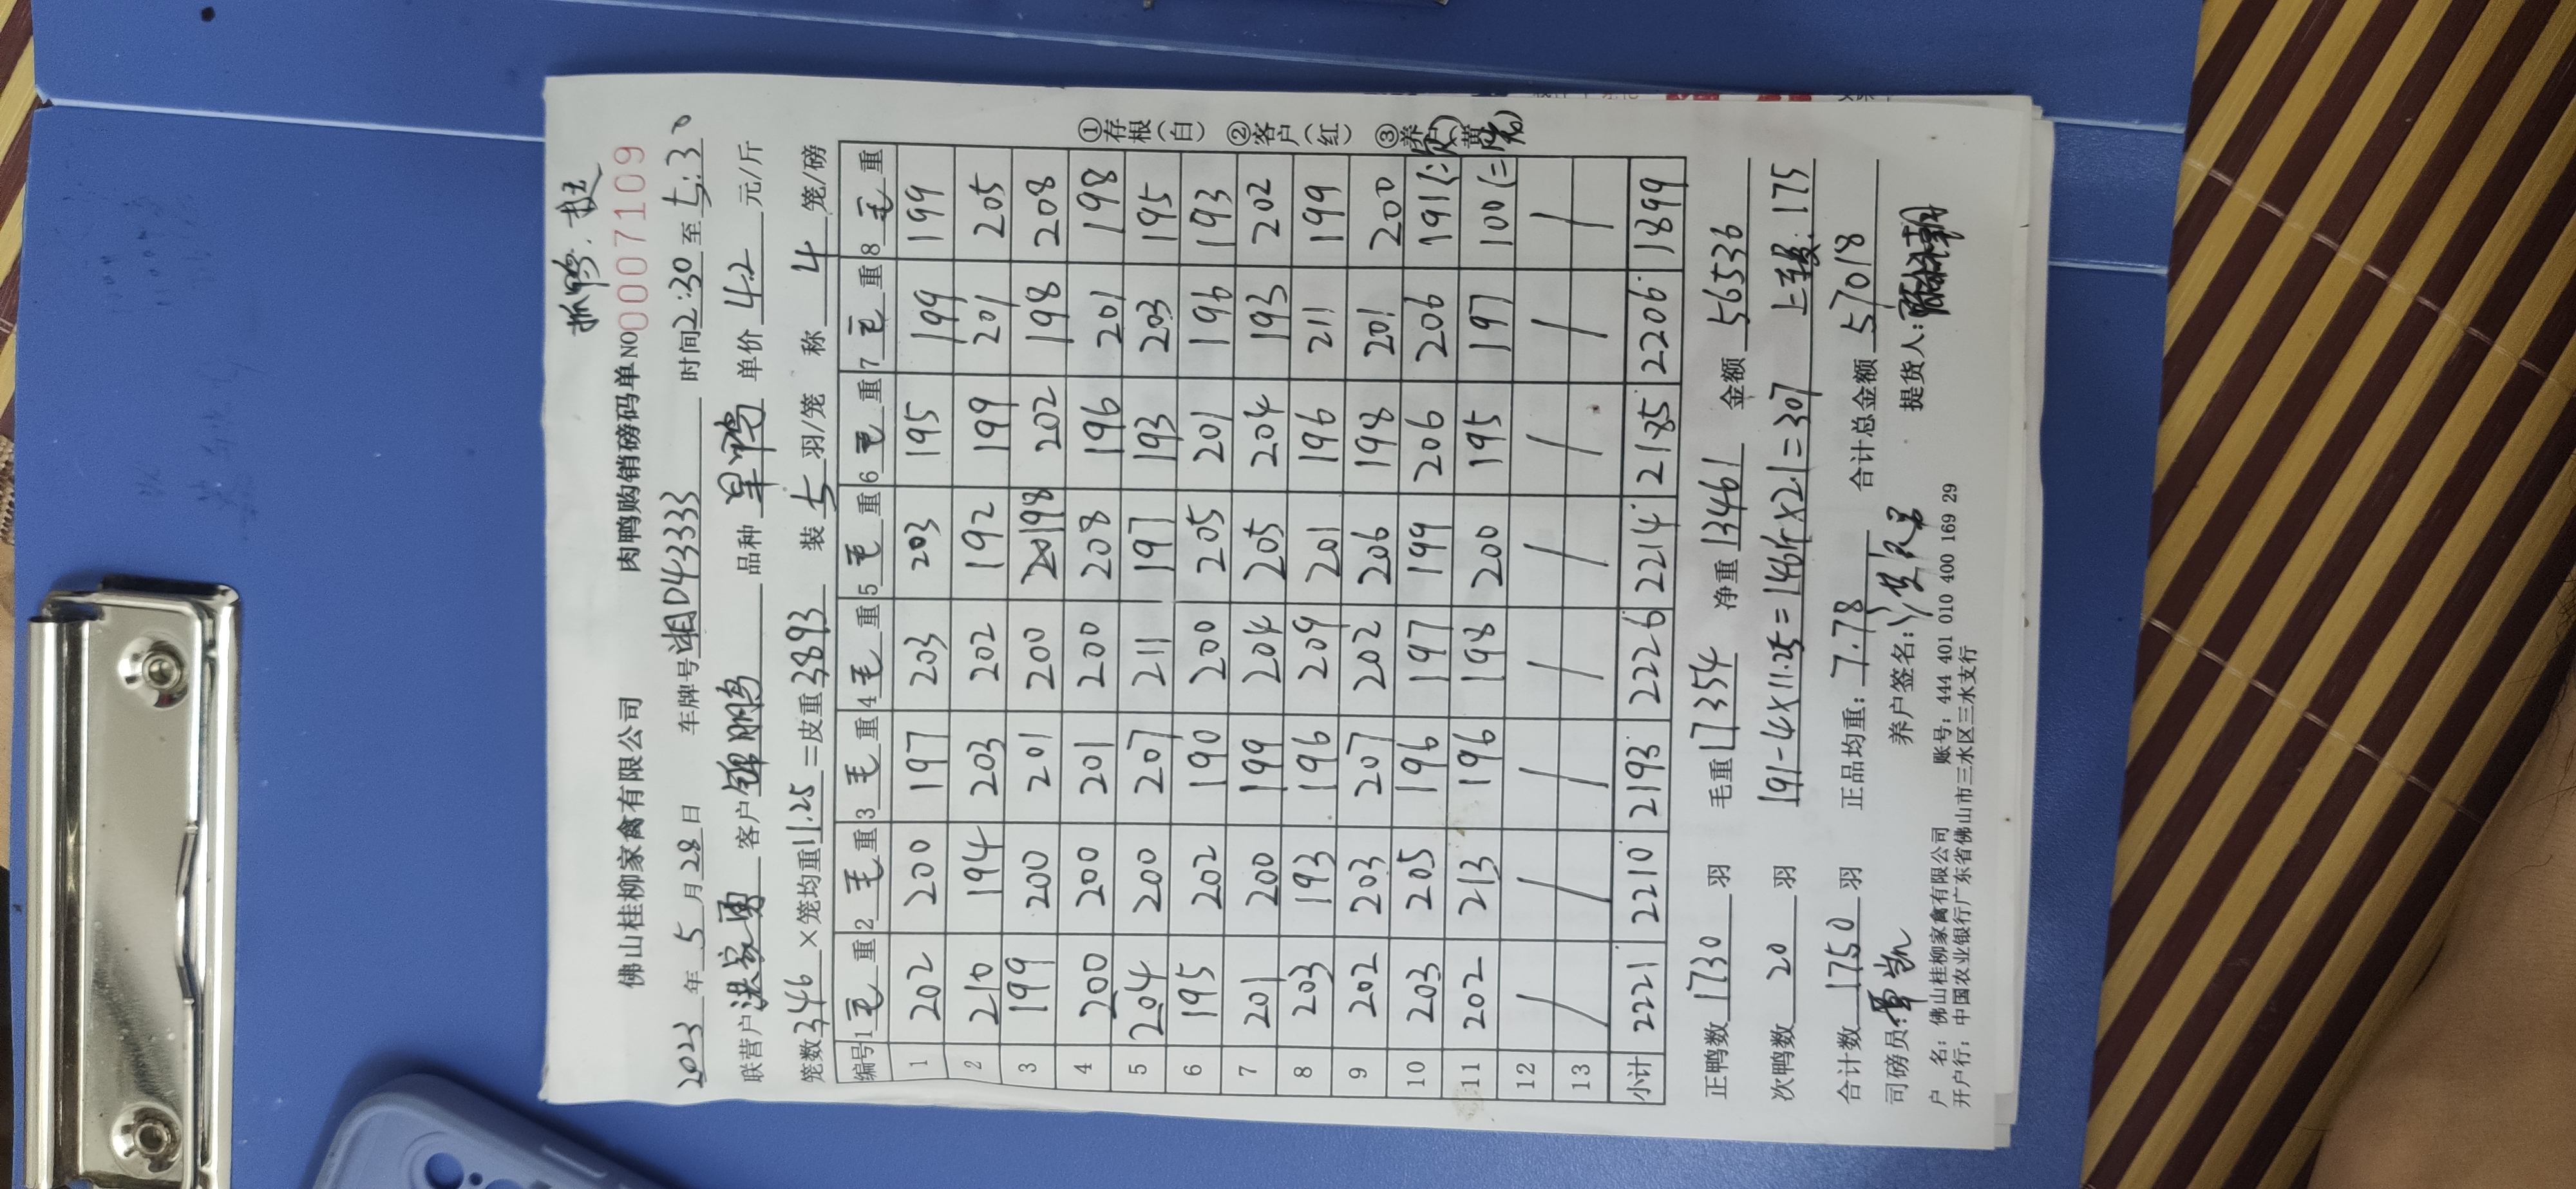 抓鸭:赵
佛山桂柳家禽有限公司 肉鸭购销磅码单 NO 0007109
2023年5月28日 车牌号湘D43333 时间2:30至5:30
联营户洪家勇 客户邹鹏鸟 品种 单价4.2元/斤
笼数346×笼均重11.25=皮重3893 装5羽/笼 称4笼/磅
编号 1毛重 2毛重 3毛重 4毛重 5毛重 6毛重 7毛重 8毛重
1 202 200 197 203 203 195 199 199
2 210 194 203 202 192 199 201 205
3 199 200 201 200 198 202 198 208
4 200 200 201 200 208 196 201 198
5 204 200 207 211 197 193 203 195
6 195 202 190 200 205 201 196 193
7 201 200 199 204 205 204 193 202
8 203 193 196 209 201 196 211 199
9 202 203 207 202 206 198 201 200
10 203 205 196 197 199 206 206 191(二
11 202 213 196 198 200 195 197 100(二
12 / / / / / / / /
13 / / / / / / / /
小计 2221 2210 2193 2226 2214 2185 2206 1899
①存根(白) ②客户(红) ③养户(黄)
正鸭数1730羽 毛重17354 净重13461 金额56536
次鸭数20羽 191-4×11.25=146斤×2.1=307 上车费:175
合计数1750羽 正品均重:7.78 合计总金额57018
司磅员: 养户签名: 提货人:
户 名:佛山桂柳家禽有限公司 账号:444 401 010 400 169 29
开户行:中国农业银行广东省佛山市三水区三水支行